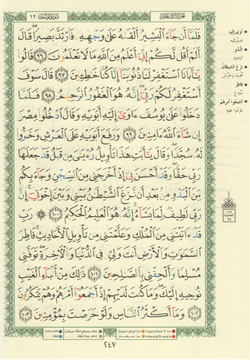 سُورَةُ يُوسُفَ ١٢
فَلَمَّآ أَن جَآءَ ٱلْبَشِيرُ أَلْقَىٰهُ عَلَىٰ وَجْهِهِۦ فَٱرْتَدَّ بَصِيرًا قَالَ
أَلَمْ أَقُل لَّكُمْ إِنِّىٓ أَعْلَمُ مِنَ ٱللَّهِ مَا لَا تَعْلَمُونَ ٩٦ قَالُوا۟
يَٰٓأَبَانَا ٱسْتَغْفِرْ لَنَا ذُنُوبَنَآ إِنَّا كُنَّا خَٰطِـِٔينَ ٩٧ قَالَ سَوْفَ
أَسْتَغْفِرُ لَكُمْ رَبِّىٓ إِنَّهُۥ هُوَ ٱلْغَفُورُ ٱلرَّحِيمُ ٩٨ فَلَمَّا
دَخَلُوا۟ عَلَىٰ يُوسُفَ ءَاوَىٰٓ إِلَيْهِ أَبَوَيْهِ وَقَالَ ٱدْخُلُوا۟ مِصْرَ
إِن شَآءَ ٱللَّهُ ءَامِنِينَ ٩٩ وَرَفَعَ أَبَوَيْهِ عَلَى ٱلْعَرْشِ وَخَرُّوا۟
لَهُۥ سُجَّدًا وَقَالَ يَٰٓأَبَتِ هَٰذَا تَأْوِيلُ رُءْيَٰىَ مِن قَبْلُ قَدْ جَعَلَهَا
رَبِّى حَقًّا وَقَدْ أَحْسَنَ بِىٓ إِذْ أَخْرَجَنِى مِنَ ٱلسِّجْنِ وَجَآءَ بِكُم
مِّنَ ٱلْبَدْوِ مِنۢ بَعْدِ أَن نَّزَغَ ٱلشَّيْطَٰنُ بَيْنِى وَبَيْنَ إِخْوَتِىٓ إِنَّ
رَبِّى لَطِيفٌ لِّمَا يَشَآءُ إِنَّهُۥ هُوَ ٱلْعَلِيمُ ٱلْحَكِيمُ ١٠٠ رَبِّ
قَدْ ءَاتَيْتَنِى مِنَ ٱلْمُلْكِ وَعَلَّمْتَنِى مِن تَأْوِيلِ ٱلْأَحَادِيثِ فَاطِرَ
ٱلسَّمَٰوَٰتِ وَٱلْأَرْضِ أَنتَ وَلِىِّۦ فِى ٱلدُّنْيَا وَٱلْءَاخِرَةِ تَوَفَّنِى
مُسْلِمًا وَأَلْحِقْنِى بِٱلصَّٰلِحِينَ ١٠١ ذَٰلِكَ مِنْ أَنۢبَآءِ ٱلْغَيْبِ
نُوحِيهِ إِلَيْكَ وَمَا كُنتَ لَدَيْهِمْ إِذْ أَجْمَعُوٓا۟ أَمْرَهُمْ وَهُمْ يَمْكُرُونَ
١٠٢ وَمَآ أَكْثَرُ ٱلنَّاسِ وَلَوْ حَرَصْتَ بِمُؤْمِنِينَ ١٠٣
٢٤٧